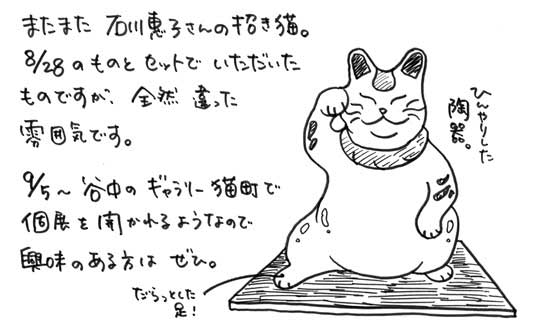 またまた 石川恵子さんの招き猫。
8/28のものとセットでいただいた
ものですが、全然違った
雰囲気です。
9/5～谷中のギャラリー猫町で
個展を開かれるようなので
興味のある方はぜひ。
ひんやりした
陶器。
だらっとした
足！